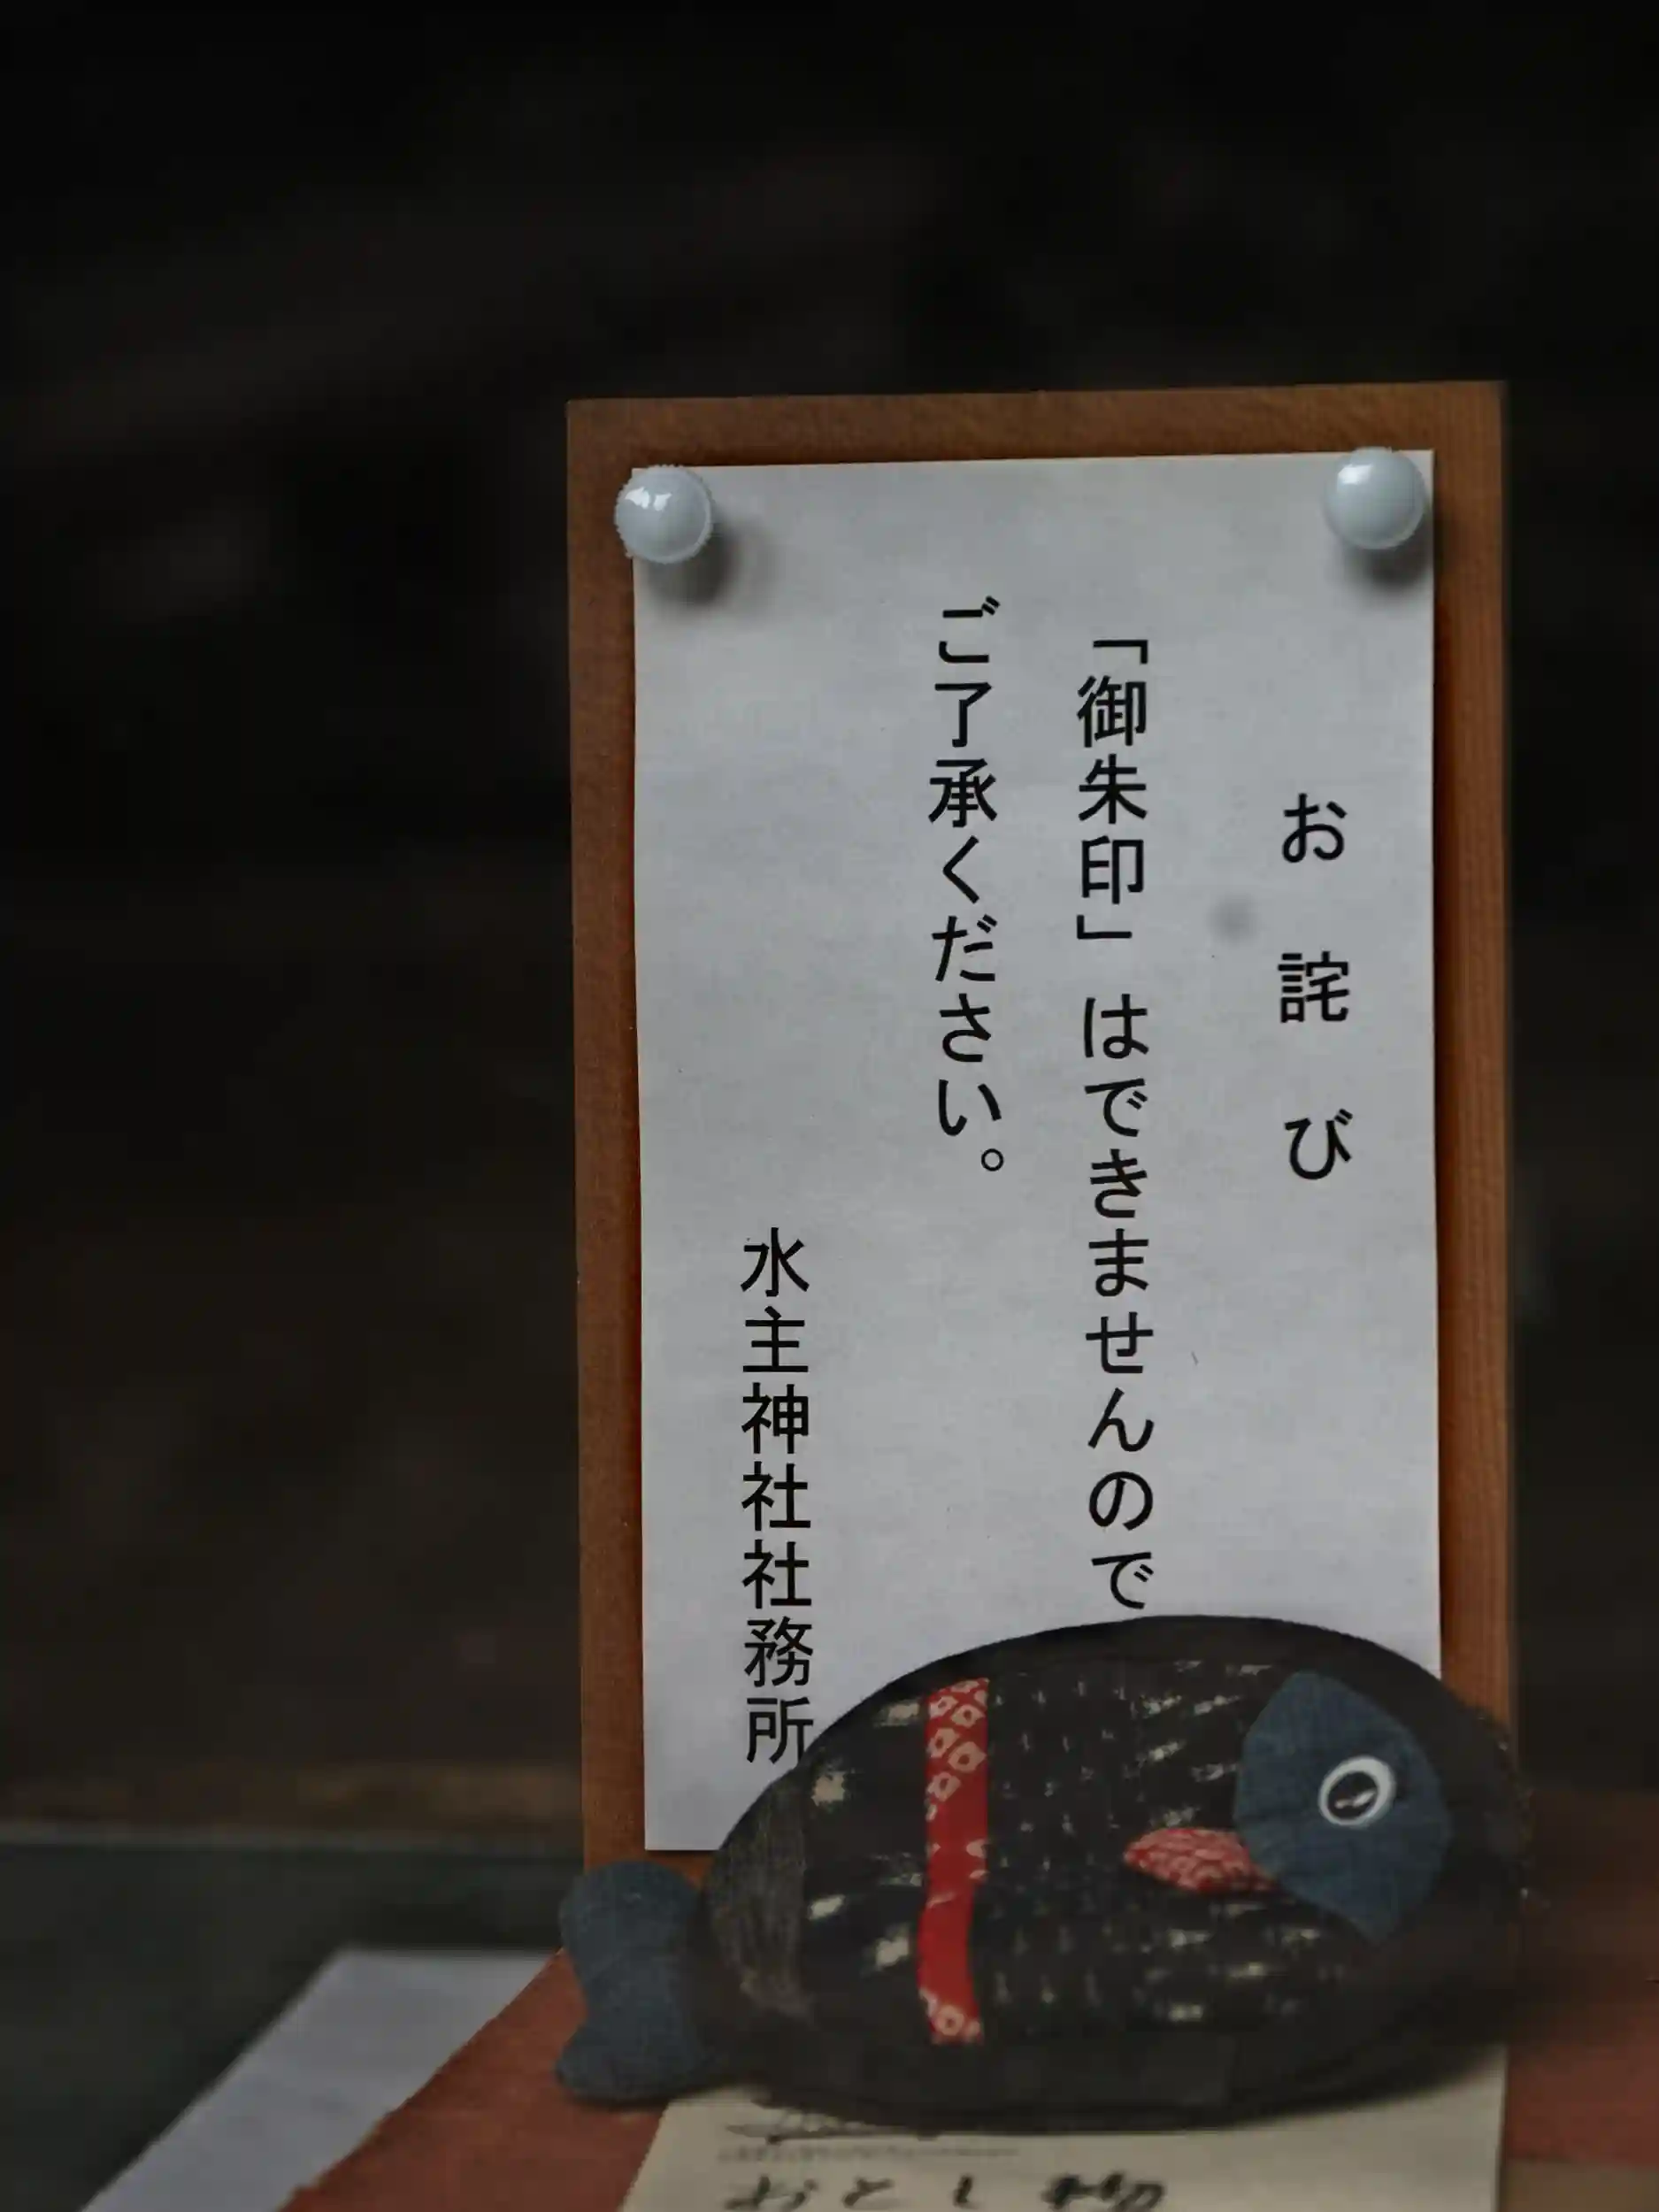 お詫び
「御朱印」はできませんので
ご了承ください。
水主神社社務所
おとし物